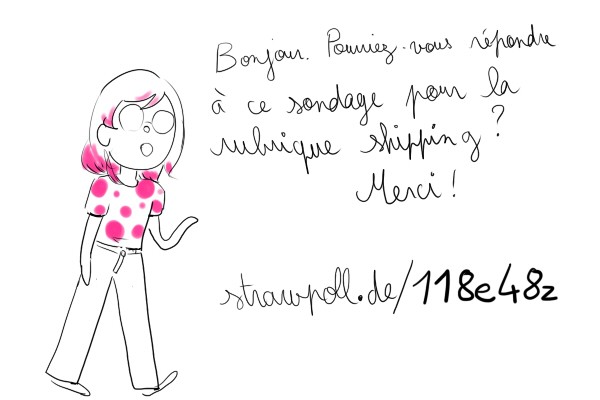 Bonjour. Pourriez-vous répondre
à ce sondage pour la
rubrique shipping ?
Merci !
strawpoll.de/118e48z